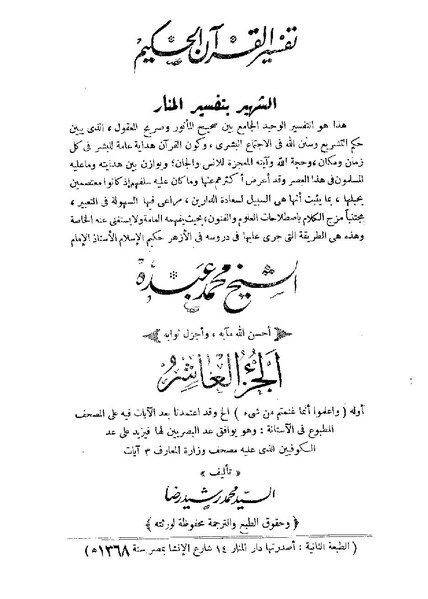 تفسير القرآن الحكيم
الشهير بتفسير المنار
هذا هو التفسير الوحيد الجامع بين صحيح المأثور وصريح المعقول ، الذي يبين
حكم التشريع وسنن الله في الاجتماع البشرى ، وكون القرآن هداية عامة للبشر في كل
زمان ومكان ، وحجة الله وآيته المعجزة للانس والجان؛ ويوازن بين هدايته وماعليه
المسلمون في هذا العصر وقد أعرض أكثرهم عنها وما كان عليه سلفهم إذ كانوا معتصمين
بحبلها ، بما يثبت أنها هى السبيل لسعادة الدارين ، مراعى فيها السهولة فى التعبير ،
مجتنباً مزج الكلام باصطلاحات العلوم والفنون، بحيث يفهمه العامة ولا يستغنى عنه الخاصة
وهذه هى الطريقة التى جرى عليها فى دروسه فى الأزهر حكيم الإسلام الأستاذ الإمام
الشيخ محمد عبده
أحسن الله مآبه ، وأجزل ثوابه
الجزء العاشر
أوله ( واعلموا أنما غنمتم من شىء ) الخ وقد اعتمدنا بعد الآيات فيه على المصحف
المطبوع فى الآستانة : وهو يوافق عد البصريين لها فيزيد على عد
الكوفيين الذى عليه مصحف وزارة المعارف ٣ آيات
« تأليف »
السيد محمد رشيد رضا
﴿ وحقوق الطبع والترجمة محفوظة لورثته ﴾
( الطبعة الثانية : أصدرتها دار المنار ١٤ شارع الإنشا بمصر سنة ١٣٦٨ ه )